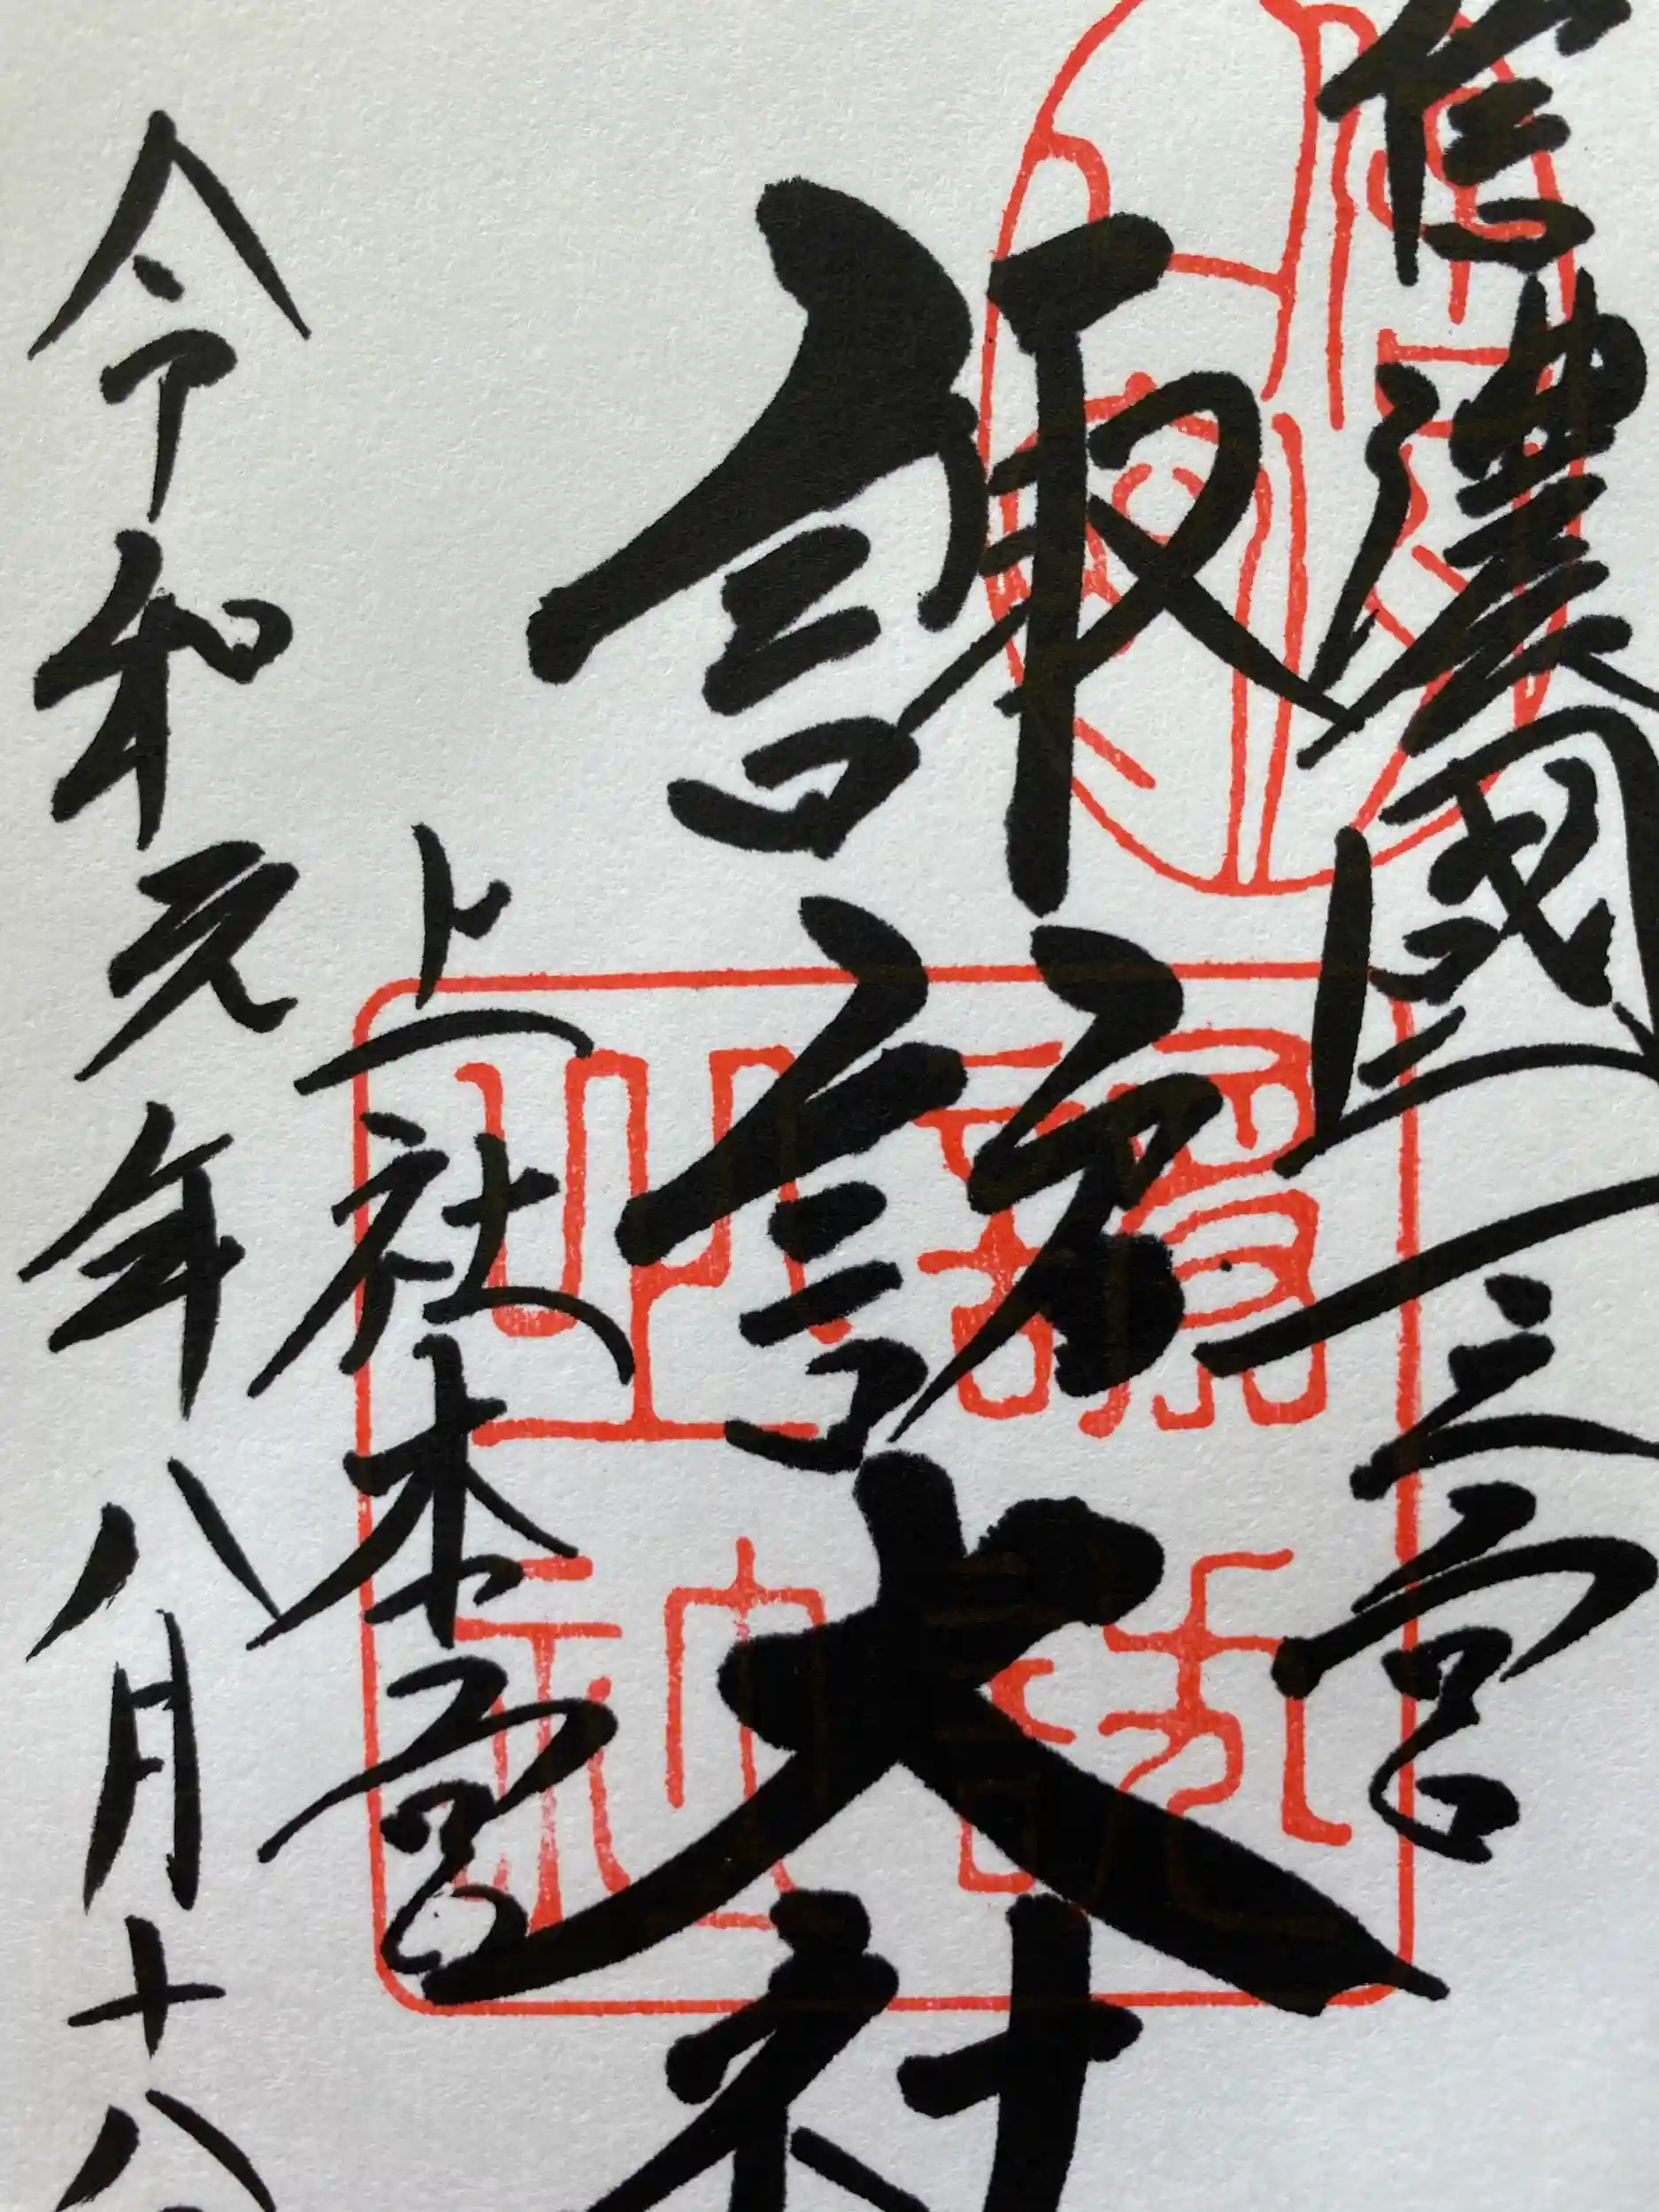 信濃國一之宮
諏訪大社
上社本宮
令和元年八月十八